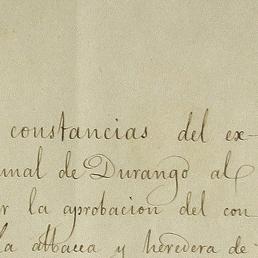 constancias del ex-
unal de Durango al
r la aprobacion del con
la albacea y heredera de